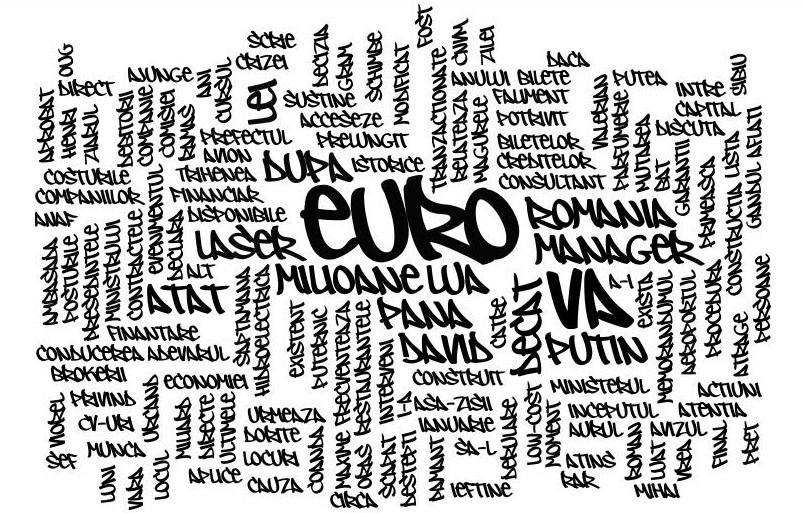 FOST
SCRIE
CRIZEI
DECIZIA
GRAM
SCHIMBE
MODIFICAT
TRANZACTIONATE
CNVM
ZILEI
OUG
DIRECT
AJUNGE
ANI
CURSUL
LEI
SUSTINE
ACCESEZE
DACA
ANULUI
BILETE
PUTEA
INTRE
SIBIU
APROBAT
HENRI
ZIARUL
DEBITORII
COMPANIE
COMISIEI
RAMAS
PREFECTUL
PRELUNGIT
RELATEAZA
MAGURELE
FALIMENT
POTRIVIT
BILETELOR
CREDITELOR
CONSULTANT
VALERIAN
PARFUMERIE
MUTAREA
BAT
CAPITAL
DISCUTA
GARANTII
PRIMEASCA
LISTA
CONSTRUCTIA
AFLATI
GANDUL
AVION
TRIHENEA
DUPA
ISTORICE
COSTURILE
COMPANIILOR
ANAF
EVENIMENTUL
FINANCIAR
DISPONIBILE
EURO
ROMANIA
MANAGER
LASER
AMBASADA
POSTURILE
PRESEDINTELE
MINISTRULUI
CONTRACTELE
DECLARA
ALT
ATAT
MILIOANE
LUA
PANA
DAVID
CATRE
DECAT
VA
A-I
PUTIN
EXISTA
MEMORANDUMUL
AEROPORTUL
PROCEDURA
ATRAGE
PERSOANE
FINANTARE
CONDUCEREA
ADEVARUL
SAPTAMANA
HIDROELECTRICA
EXISTENT
PUTERNIC
FRECVENTEAZA
RESTAURANTELE
INTERVENI
BROKERII
ECONOMIEI
CONSTRUIT
MINISTERUL
ACTIUNI
VIOREL
PRIVIND
CV-URI
MUNCA
SEF
URCAND
MILIARD
DIRECTE
ULTIMELE
URMEAZA
DORITE
LOCURI
CAUZA
COANDA
MAXIME
ORAS
CIRCA
SCAPAT
I-A
DESTEPTI
ASA-ZISII
IANUARIE
SA-L
DAMANT
DERULARE
LOW-COST
MOMENT
INCEPUTUL
ATENTIA
AURUL
AVIZUL
ATINS
RAR
ROMAN
LUAT
VREA
FINAL
PRET
LUNI
VARA
LOCUL
APLICE
IEFTINE
MIHAI